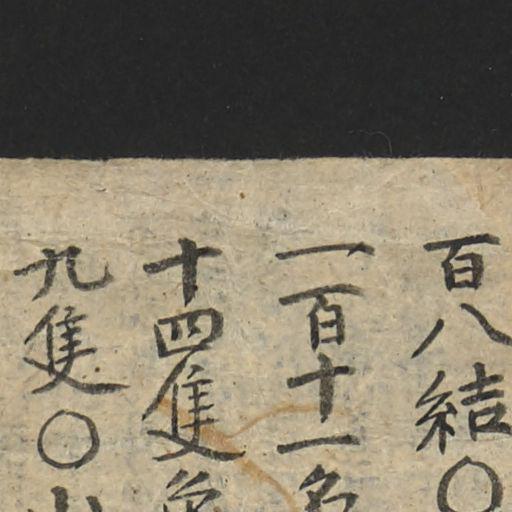 百八結○
一百十一名
十四隻
九隻○